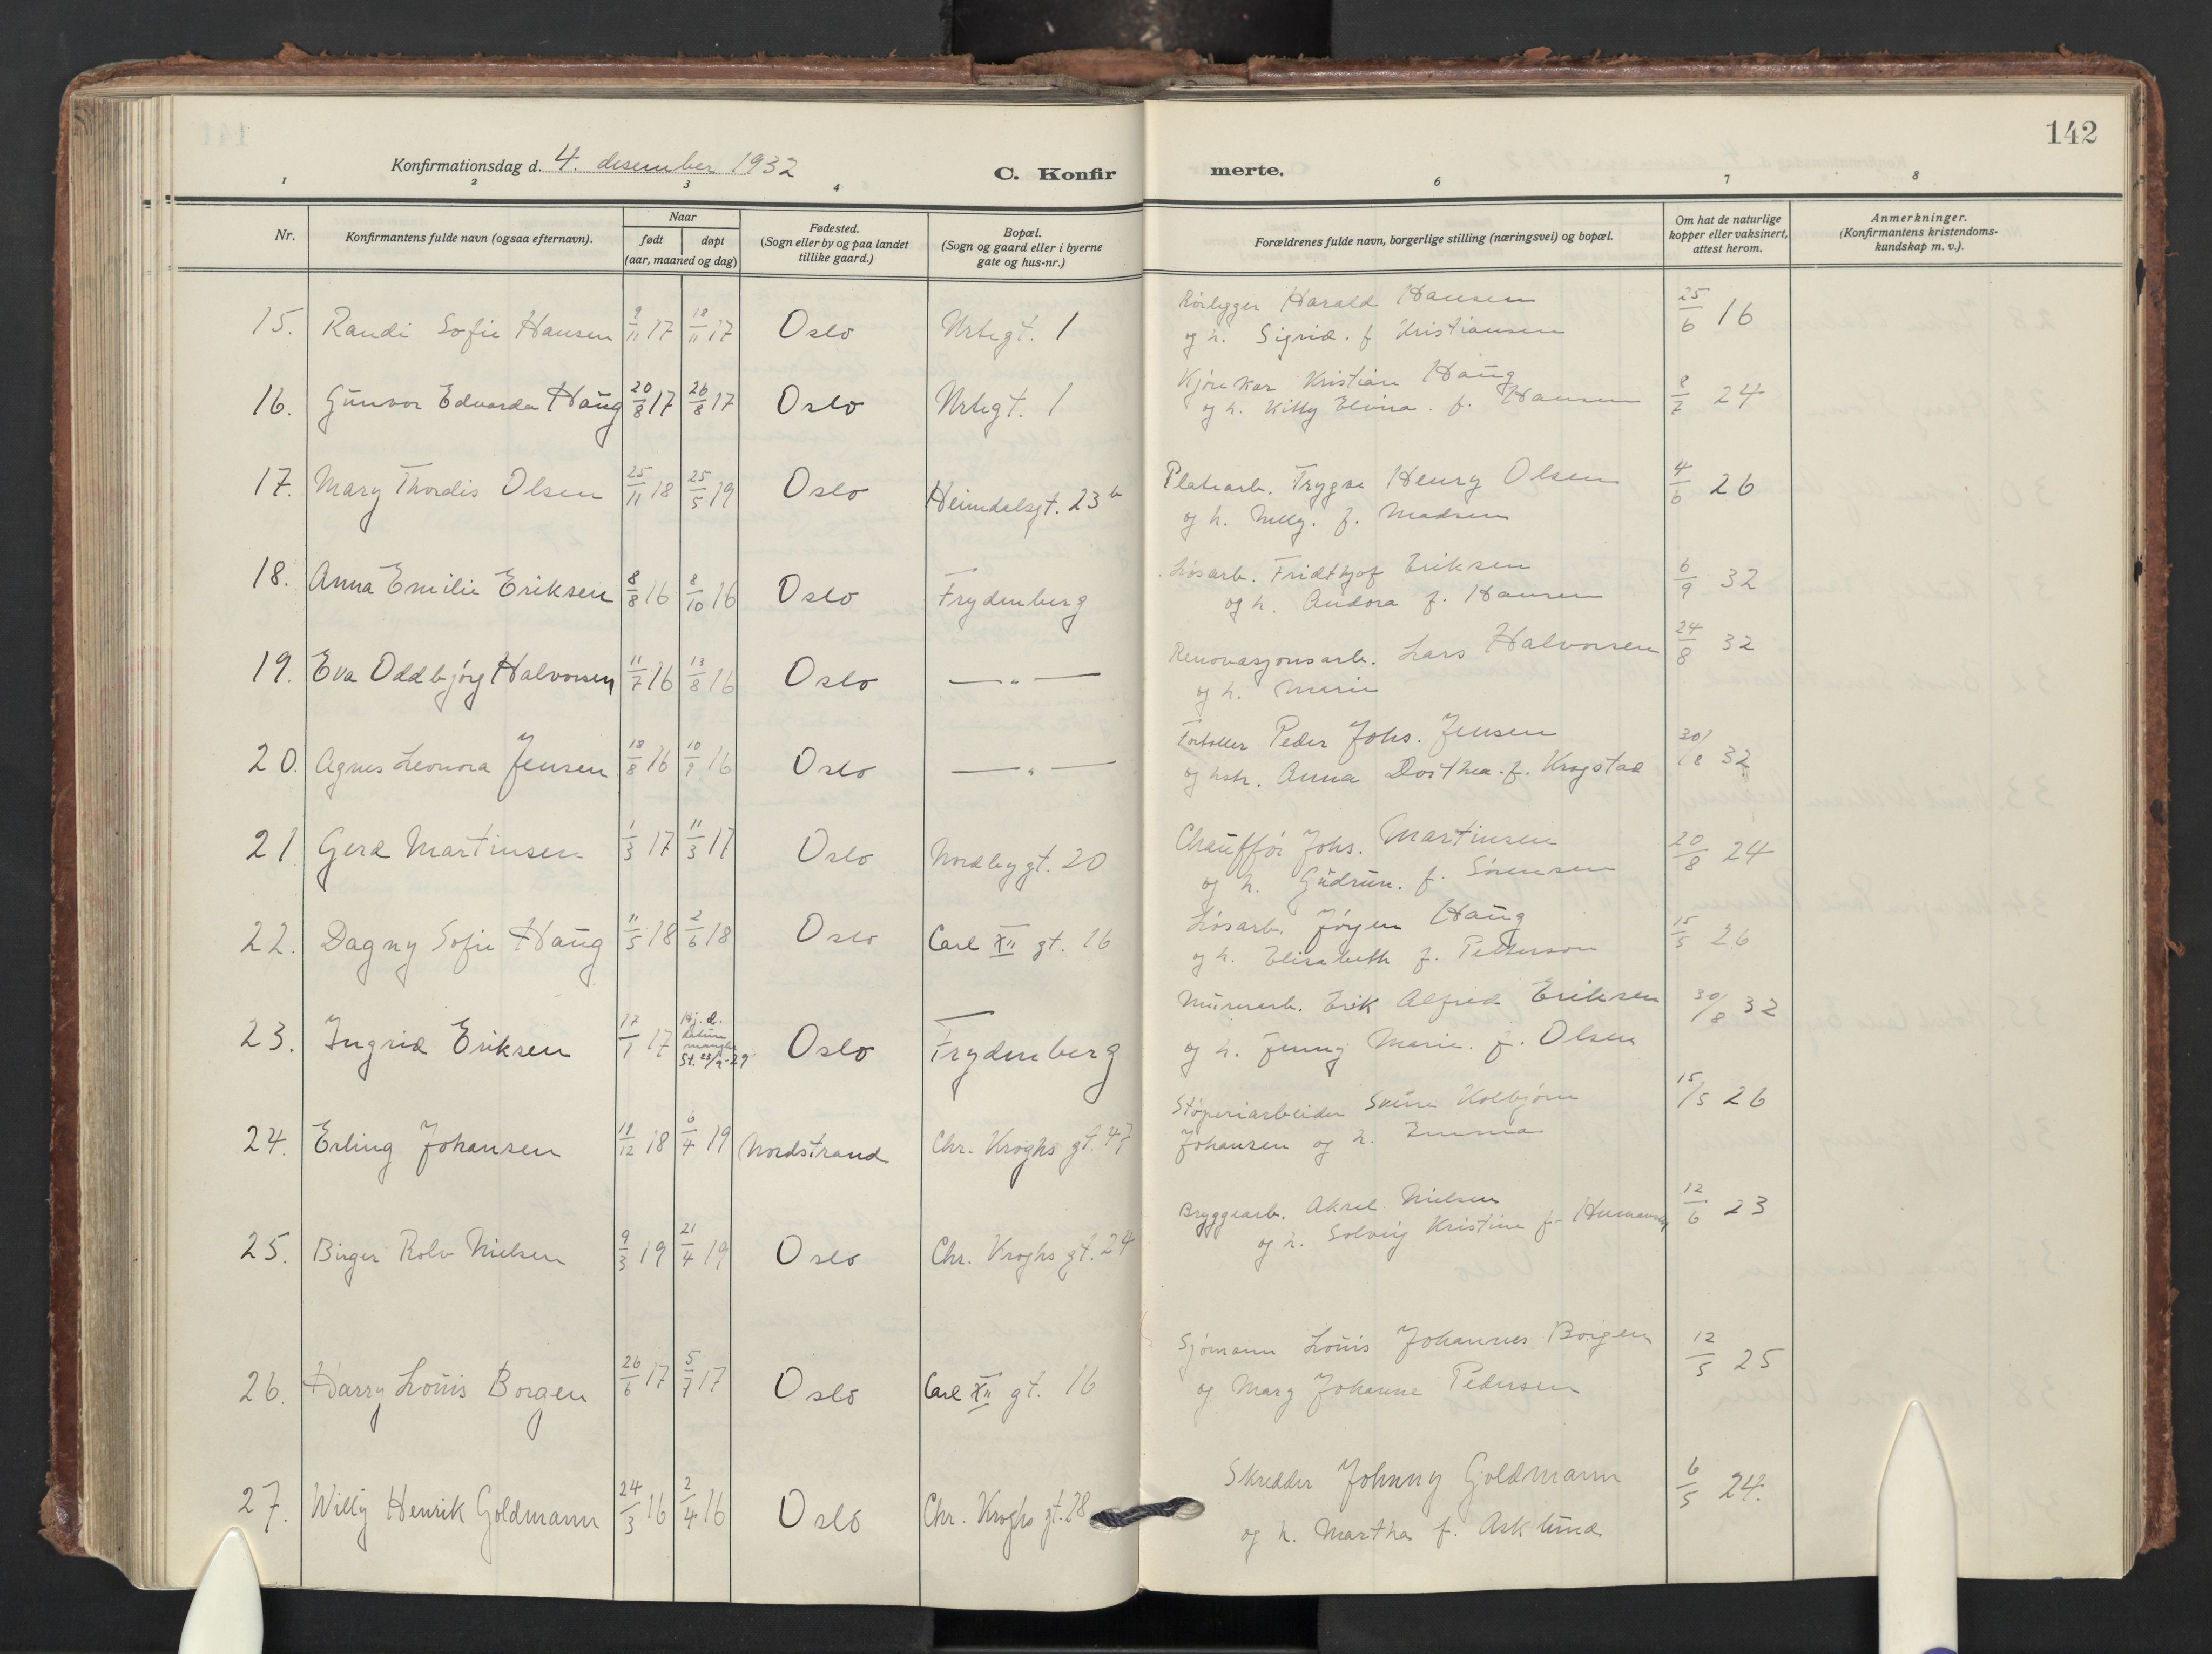 142
Konfirmationsdag d. 4. desember 1932
C. Konfir merte.
1 2 3 4 6 7 8
Nr.
Konfirmantens fulde navn (ogsaa efternavn).
Naar
født døpt
(aar, maaned og dag)
Fødested.
(Sogn eller by og paa landet
tillike gaard.)
Bopæl.
(Sogn og gaard eller i byerne
gate og hus-nr.)
Forældrenes fulde navn, borgerlige stilling (næringsvei) og bopæl.
Om hat de naturlige
kopper eller vaksinert,
attest herom.
Anmerkninger.
(Konfirmantens kristendoms-
kundskap m. v.).
15. Randi Sofie Hansen 9/11 17 18/11 17 Oslo Urtegt. 1
Rørlegger Harald Hansen 25/6 16
og h. Sigrid. f Kristiansen
16. Gunvor Edvarda Haug 20/8 17 26/8 17 Oslo Urtegt. 1
Kjørekar Kristian Haug 8/7 24
og h. Kitty Elvira. f. Hansen
17. Mary Thordis Olsen 25/11 18 25/5 19 Oslo Heimdalsgt. 23 b
Platearb. Trygve Henry Olsen 4/6 26
og h. Nelly. f. Madsen
18. Anna Emilie Eriksen 8/8 16 8/10 16 Oslo Frydenberg
Løsarb. Fridthjof Eriksen 6/9 32
og h. Andora f. Hansen
19. Eva Oddbjørg Halvorsen 11/7 16 13/8 16 Oslo — " —
Renovasjonsarb. Lars Halvorsen 24/8 32
og h. Marie
20. Agnes Leonora Jensen 18/8 16 10/9 16 Oslo — " —
Peder Johs. Jensen 30/8 32
og hstr. Anna Dorthea. f. Krogstad
21. Gerd Martinsen 1/3 17 11/3 17 Oslo Nordbygt. 20
Chauffør Johs. Martinsen 20/8 24
og h. Gudrun. f. Sørensen
22. Dagny Sofie Haug 11/5 18 2/6 18 Oslo Carl XII gt. 16
Løsarb. Jørgen Haug 15/5 26
og h. Elisabeth f. Petterson
23. Ingrid Eriksen 17/1 17 Hj. d. datum mangler St. 23/9-29 Oslo Frydenberg
Murerarb. Erik Alfred Eriksen 30/8 32
og h. Jenny Marie. f. Olsen
24. Erling Johansen 18/12 18 6/4 19 Nordstrand Chr. Kroghs gt. 47
Støperiarbeider Sverre Kolbjørn 15/5 26
Johansen og h. Emma
25. Birger Rolv Nielsen 9/3 19 21/4 19 Oslo Chr. Kroghs gt. 24
Bryggearb. Aksel Nielsen 12/6 23
og h. Solveig Kristine f. Hermansen
26. Harry Louis Borgen 26/6 17 5/7 17 Oslo Carl XII gt. 16
Sjømann Louis Johannes Borgen 12/5 25
og Mary Johanne Pedersen
27. Willy Henrik Goldmann 24/3 16 2/4 16 Oslo Chr. Kroghs gt. 28
Skredder Johnny Goldmann 6/5 24.
og h. Martha f. Asklund